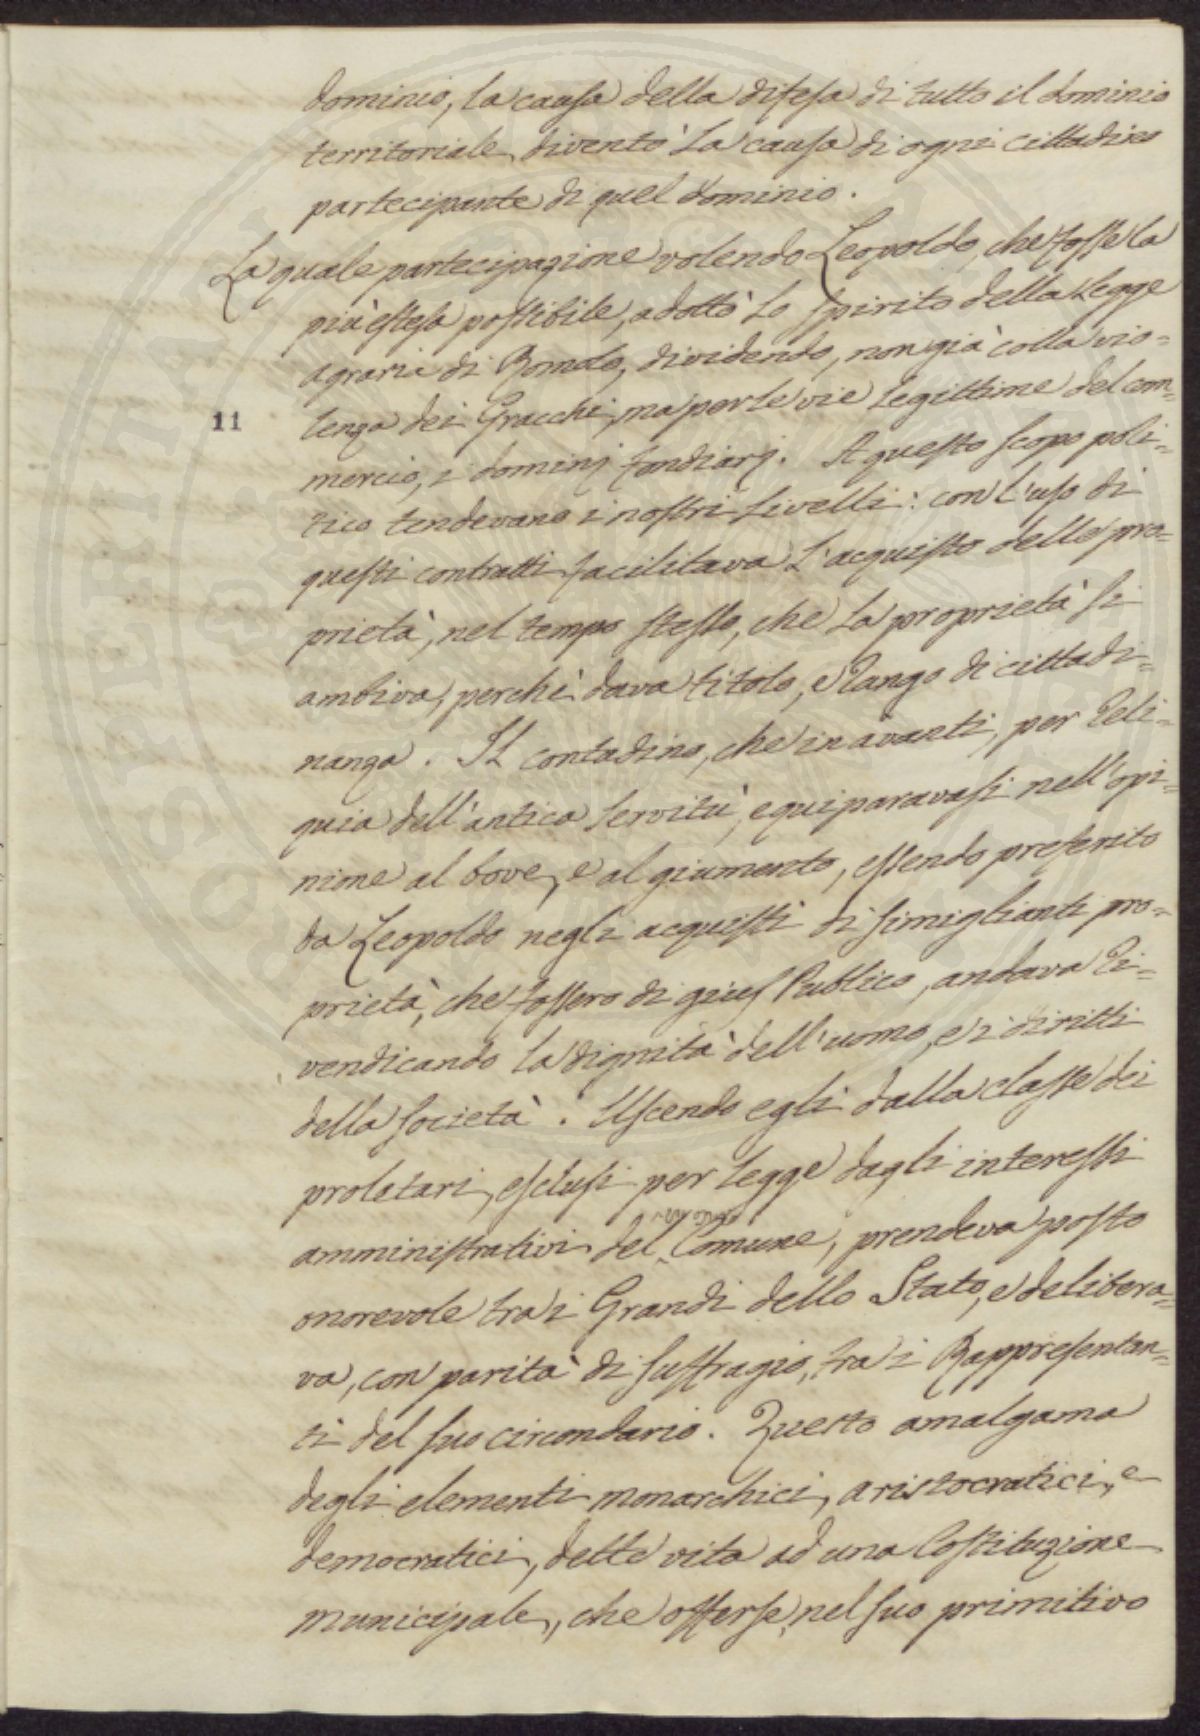 dominio, la causa della difesa di tutto il dominio
territoriale, diventò la causa di ogni cittadino
partecipante di quel dominio.
La quale partecipazione volendo Leopoldo, che fosse la
più estesa possibile, adottò lo spirito della Legge
agraria di Romolo, dividendo, non già colla vio=
11
lenza dei Gracchi, ma per le vie legittime del com=
mercio, i dominj fondiarj. A questo scopo poli=
tico tendevano i nostri livelli: con l'uso di
questi contratti facilitava l'acquisto delle pro=
prietà, nel tempo stesso, che la proprietà si
ambiva, perchè dava titolo, e rango di cittadi=
nanza. Il contadino, che in avanti, per reli=
quia dell'antica servitù, equiparavasi nell'opi=
nione al bove, e al giumento, essendo preferito
da Leopoldo negli acquisti di simiglianti pro=
prietà, che fossero di gius Publico, andava ri=
vendicando la dignità dell'uomo, e i diritti
della società. Uscendo egli dalla classe dei
proletari, esclusi per legge dagli interessi
amministrativi del Comune, prendeva posto
onorevole tra i Grandi dello Stato, e delibera=
va, con parità di suffragio, fra i Rappresentan=
ti del suo circondario. Questo amalgama
degli elementi monarchici, aristocratici, e
democratici, dette vita ad una Costituzione
municipale, che offerse, nel suo primitivo
SOSPERITAT